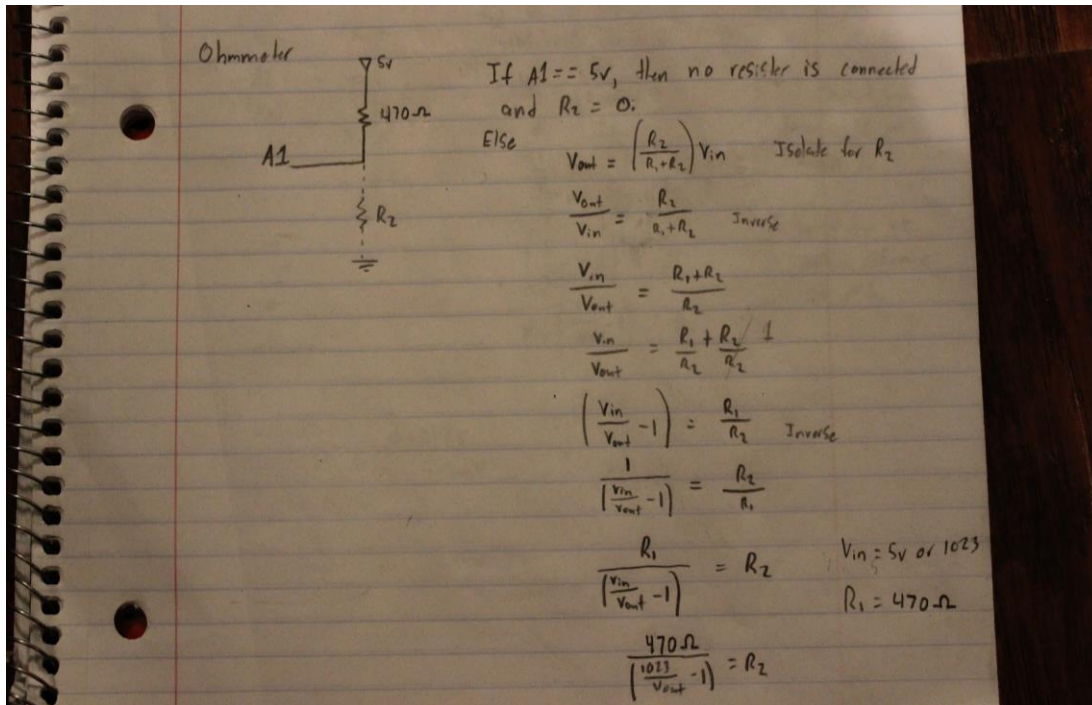 Ohmmeter
5v
470Ω
A1
R₂
If A1 == 5v, then no resister is connected
and R₂ = 0.
Else
Vout = (R₂/(R₁+R₂)) Vin Isolate for R₂
Vout/Vin = R₂/(R₁+R₂) Inverse
Vin/Vout = (R₁+R₂)/R₂
Vin/Vout = R₁/R₂ + R₂/R₂ 1
(Vin/Vout - 1) = R₁/R₂ Inverse
1/(Vin/Vout - 1) = R₂/R₁
R₁/(Vin/Vout - 1) = R₂ Vin = 5v or 1023
R₁ = 470Ω
470Ω/(1023/Vout - 1) = R₂